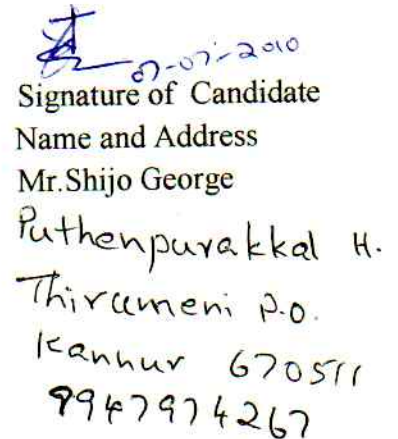 07-07-2010
Signature of Candidate
Name and Address
Mr.Shijo George
Puthenpurakkal H.
Thirumeni P.O.
Kannur 670511
9947974267